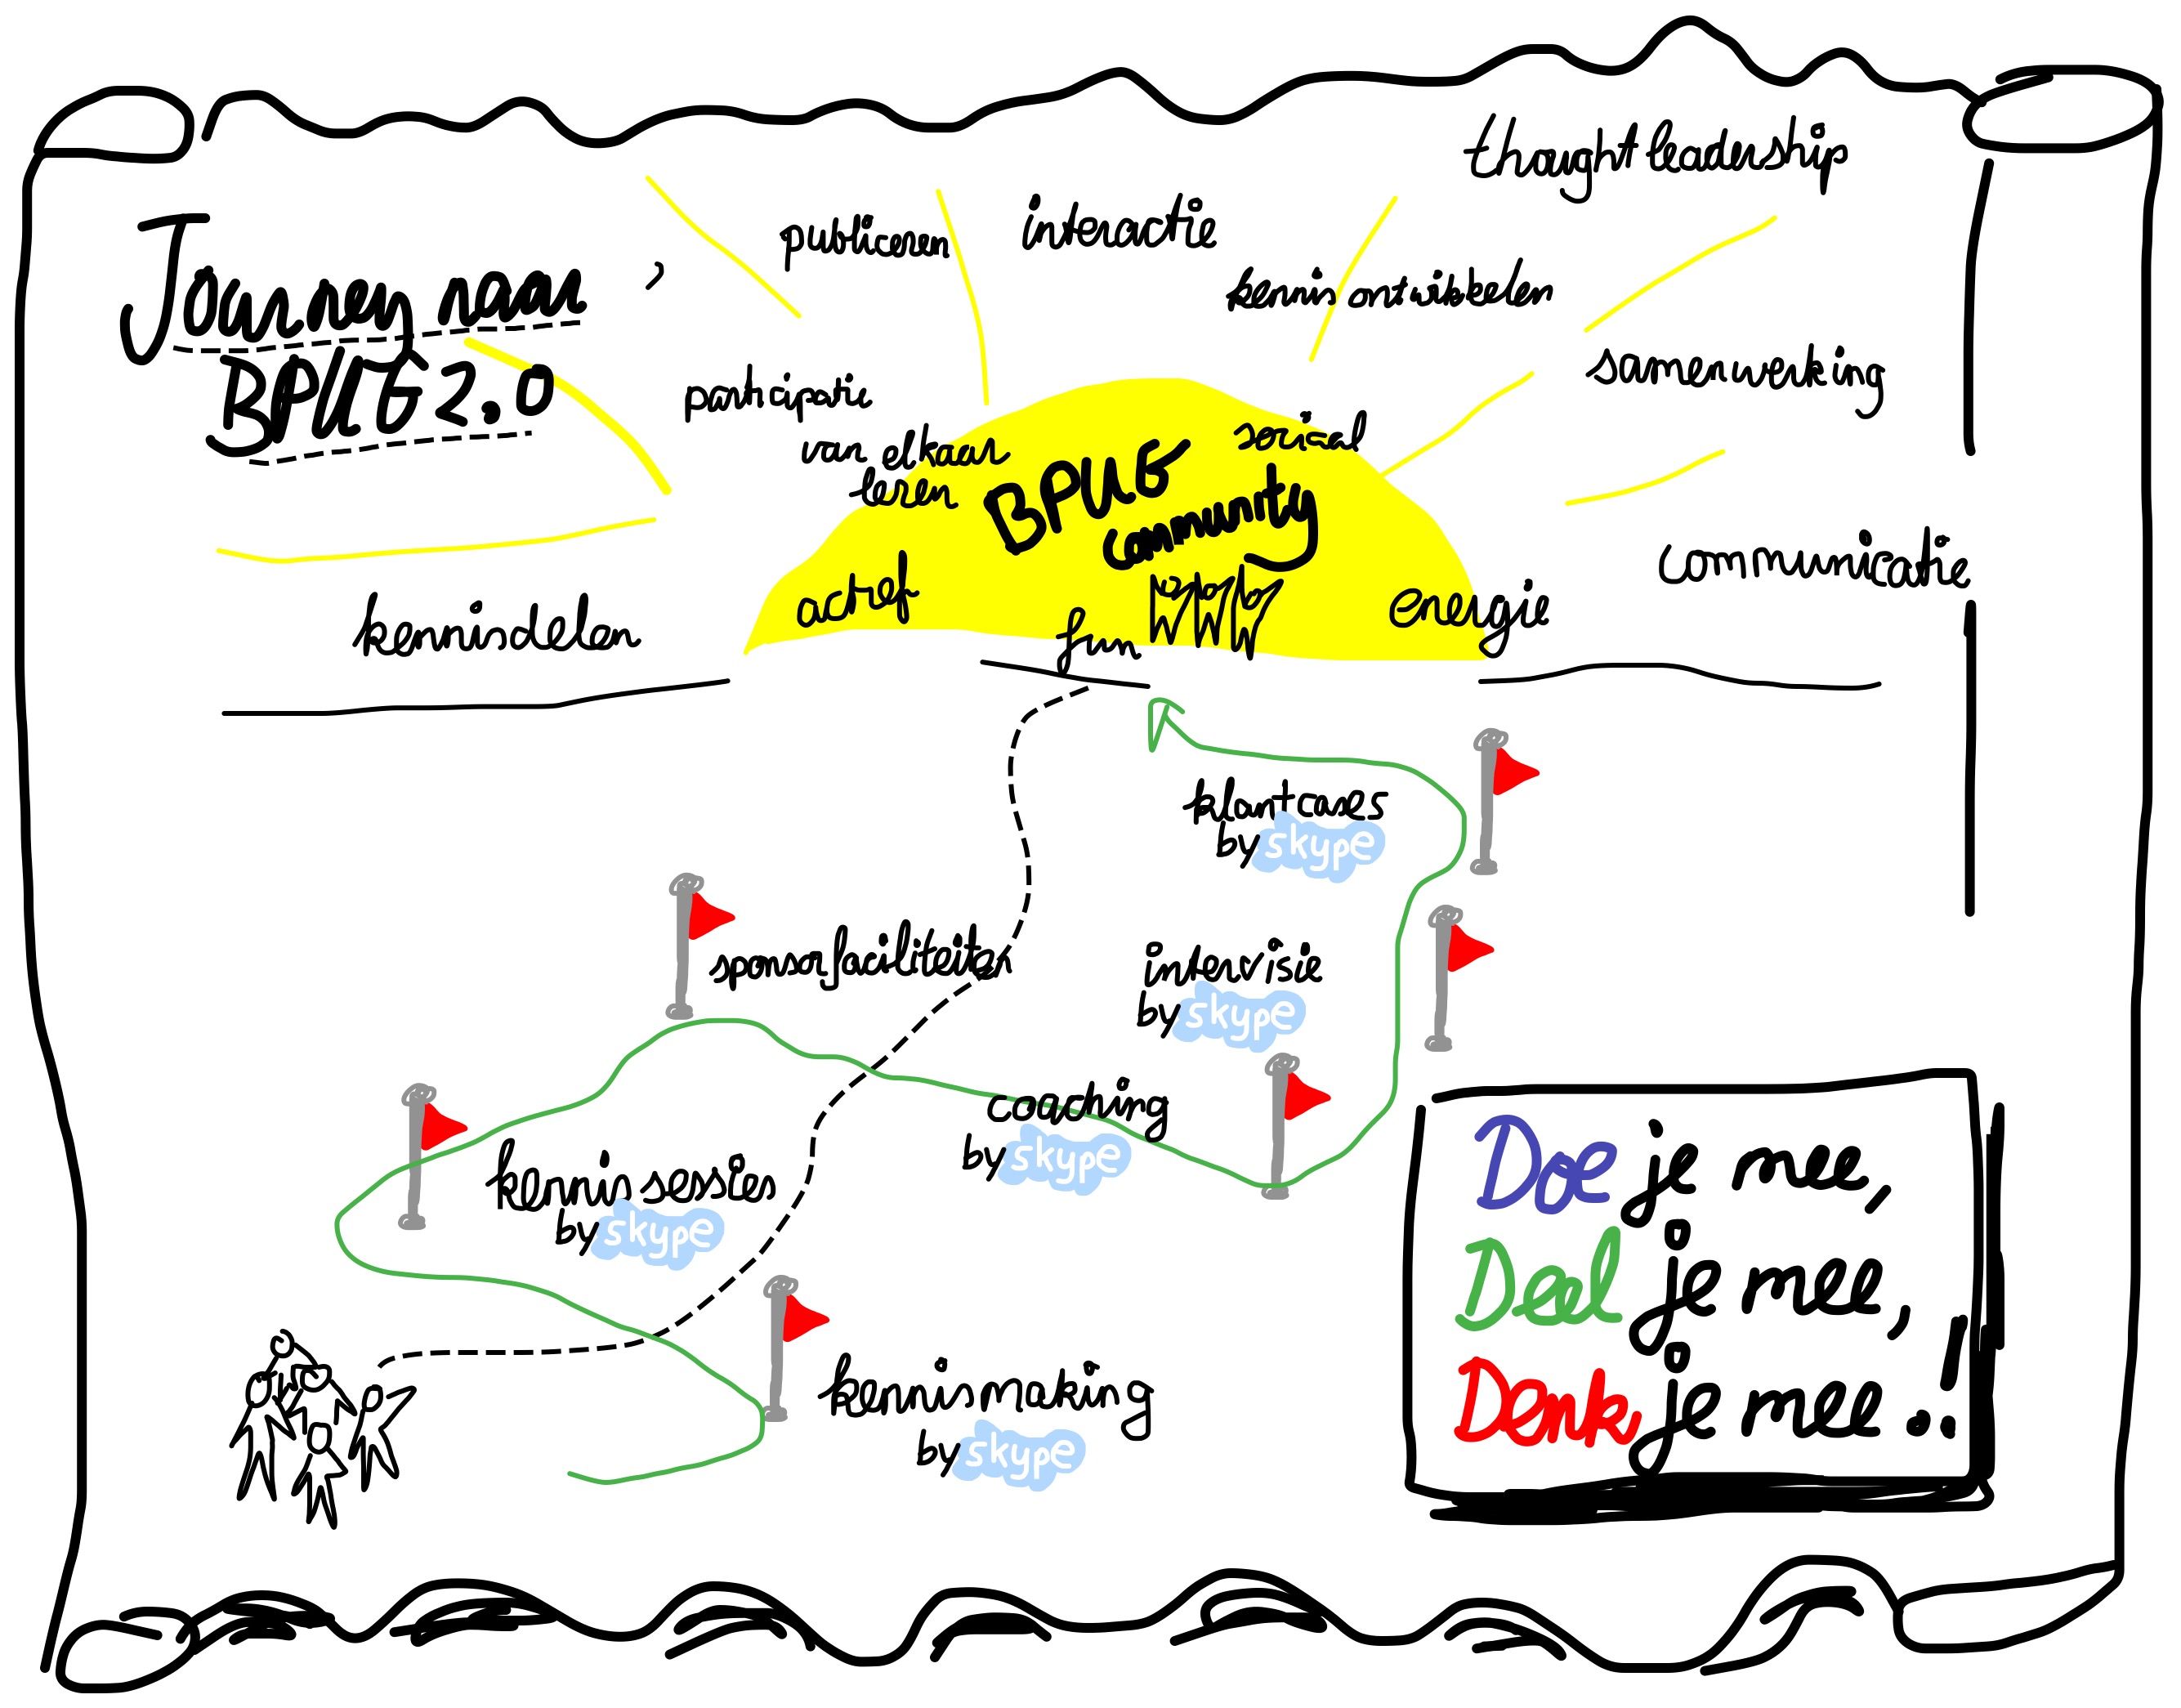 Journey naar
BPUG 2.0
thought leadership
publiceren
interactie
kennis ontwikkelen
samenwerking
participatie
van elkaar
leren
social
BPUG
community
actief
fun
energie
communicatie
kennisdelen
klantcases
by skype
sponsorfaciliteiten
intervisie
by skype
coaching
by skype
kennis sessies
by skype
kennismaking
by skype
Doe je mee,
Deel je mee,
Denk je mee..!